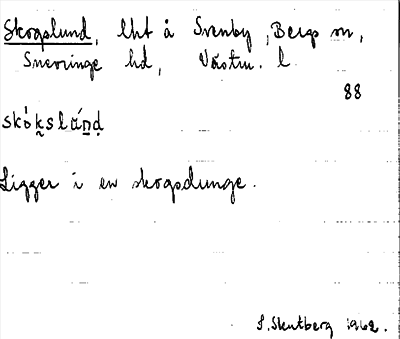 Skogslund, lht å Svenby, Bergs sn,
Snevringe hd, Västm. l.
88
Ligger i en skogsdunge.
S. Stentberg 1962.